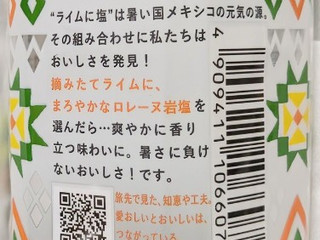 “ライムに塩”は暑い国メキシコの元気の源。
その組み合わせに私たちは
おいしさを発見！
摘みたてライムに、
まろやかなロレーヌ岩塩を
選んだら…爽やかに香り
立つ味わいに。暑さに負け
ないおいしさ！です。
旅先で見た、知恵や工夫。
愛おしいとおいしいは、
つながっている。
4 909411 106607